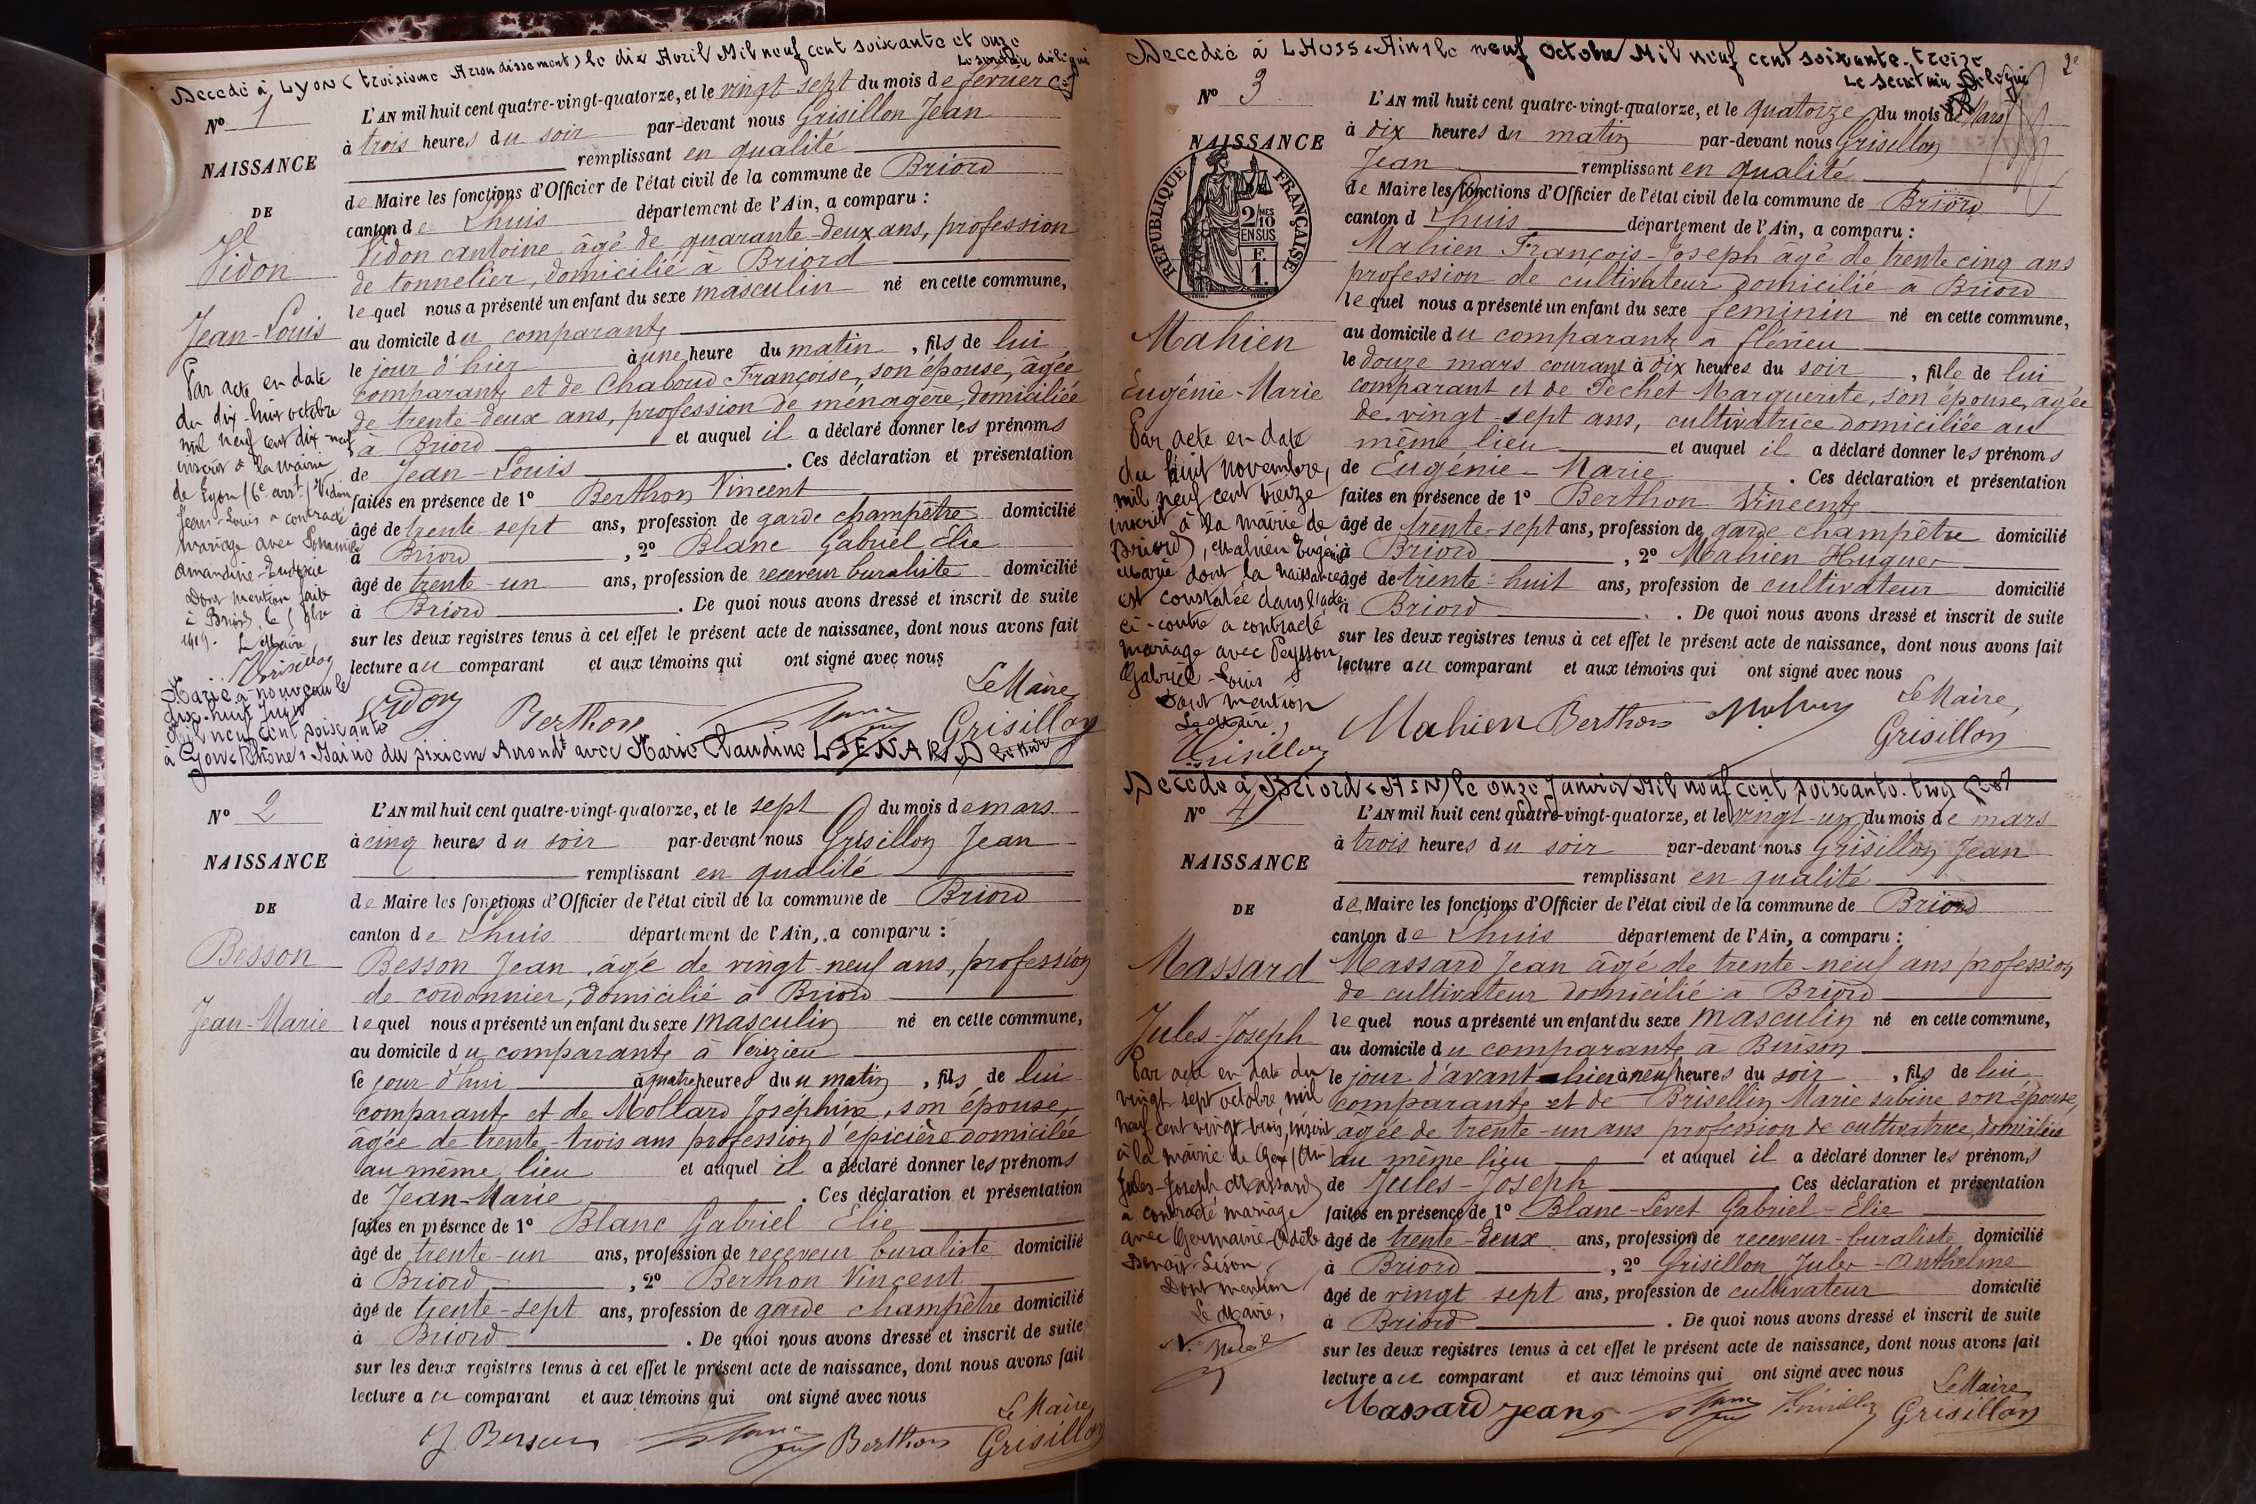 Decedé à LYON (troisieme Arrondissement) le dix Avril Mil neuf cent soixante et onze
Nº 1
NAISSANCE
DE
Vidon
Jean-Louis
Par acte en date
du dix-huit octobre
mil neuf cent dix-neuf
inscrit à la mairie
de Lyon (6e arrt) Vidon
Jean-Louis a contracté
mariage avec
Amandine-Eudoxie
Dont mention faite
à Briord, le 5 9bre
1919. Le Maire
Grisillon
Marié à nouveau le
dix-huit Juin
Mil neuf cent soixante
à Lyon (Rhône) Mairie du sixieme Arrondt avec Marie Claudine LIENARD
L'AN mil huit cent quatre-vingt-quatorze, et le vingt-sept du mois de fevrier
à trois heures du soir par-devant nous Grisillon Jean
remplissant en qualité
de Maire les fonctions d'Officier de l'état civil de la commune de Briord
canton de Lhuis département de l'Ain, a comparu :
Vidon Antoine âgé de quarante-deux ans, profession
de tonnelier, domicilié à Briord
lequel nous a présenté un enfant du sexe masculin né en cette commune,
au domicile du comparant
le jour d'hier à une heure du matin, fils de lui
comparant et de Chaboud Françoise, son épouse, âgée
de trente-deux ans, profession de ménagère, domiciliée
à Briord et auquel il a déclaré donner les prénoms
de Jean-Louis . Ces déclaration et présentation
faites en présence de 1º Berthon Vincent
âgé de trente-sept ans, profession de garde champêtre domicilié
à Briord , 2º Blanc Gabriel Elie
âgé de trente-un ans, profession de receveur buraliste domicilié
à Briord . De quoi nous avons dressé et inscrit de suite
sur les deux registres tenus à cet effet le présent acte de naissance, dont nous avons fait
lecture au comparant et aux témoins qui ont signé avec nous
Le Maire,
Vidon Berthon Grisillon
Nº 2
NAISSANCE
DE
Besson
Jean-Marie
L'AN mil huit cent quatre-vingt-quatorze, et le sept du mois de mars
à cinq heures du soir par-devant nous Grisillon Jean
remplissant en qualité
de Maire les fonctions d'Officier de l'état civil de la commune de Briord
canton de Lhuis département de l'Ain, a comparu :
Besson Jean, âgé de vingt-neuf ans, profession
de cordonnier, domicilié à Briord
lequel nous a présenté un enfant du sexe masculin né en cette commune,
au domicile du comparant à Vérizieu
le jour d'hui à quatre heures du matin, fils de lui
comparant et de Mollard Joséphine, son épouse,
âgée de trente-trois ans profession d'épicière domiciliée
au même lieu et auquel il a déclaré donner les prénoms
de Jean-Marie . Ces déclaration et présentation
faites en présence de 1º Blanc Gabriel Elie
âgé de trente-un ans, profession de receveur buraliste domicilié
à Briord , 2º Berthon Vincent
âgé de trente-sept ans, profession de garde champêtre domicilié
à Briord . De quoi nous avons dressé et inscrit de suite
sur les deux registres tenus à cet effet le présent acte de naissance, dont nous avons fait
lecture au comparant et aux témoins qui ont signé avec nous
Le Maire
J. Besson Berthon Grisillon
Decedée à LHUIS (Ain) le neuf Octobre Mil neuf cent soixante-treize
Le Secrétaire Délégué
2e
Nº 3
NAISSANCE
REPUBLIQUE FRANÇAISE
2/10 EN SUS
F. 1.
Mahien
Eugénie-Marie
Par acte en date
du huit novembre,
mil neuf cent treize
inscrit à la mairie de
Briord, Mahien Eugénie
Marie dont la naissance
est constatée dans l'acte
ci-contre a contracté
mariage avec Peysson
Gabriel-Louis
Dont mention
Le Maire,
Grisillon
L'AN mil huit cent quatre-vingt-quatorze, et le quatorze du mois de Mars
à dix heures du matin par-devant nous Grisillon
Jean remplissant en qualité
de Maire les fonctions d'Officier de l'état civil de la commune de Briord
canton d Lhuis département de l'Ain, a comparu :
Mahien François-Joseph âgé de trente cinq ans
profession de cultivateur domicilié à Briord
lequel nous a présenté un enfant du sexe féminin né en cette commune,
au domicile du comparant à flévieu
le douze mars courant à dix heures du soir, fille de lui
comparant et de Pechet Marguerite, son épouse, âgée
de vingt-sept ans, cultivatrice domiciliée au
même lieu et auquel il a déclaré donner les prénoms
de Eugénie-Marie . Ces déclaration et présentation
faites en présence de 1º Berthon Vincent
âgé de trente-sept ans, profession de garde champêtre domicilié
à Briord , 2º Mahien Hugues
âgé de trente-huit ans, profession de cultivateur domicilié
à Briord . De quoi nous avons dressé et inscrit de suite
sur les deux registres tenus à cet effet le présent acte de naissance, dont nous avons fait
lecture au comparant et aux témoins qui ont signé avec nous
Le Maire,
Mahien Berthon Grisillon
Decede à Briord (AIN) le onze Janvier Mil neuf cent soixante-trois
Nº 4
NAISSANCE
DE
Massard
Jules-Joseph
Par acte en date du
vingt sept octobre mil
neuf cent vingt trois, inscrit
à la mairie de Gex (Ain)
Jules-Joseph Massard
a contracté mariage
avec Germaine-Adèle
Dont mention
Le Maire,
L'AN mil huit cent quatre-vingt-quatorze, et le vingt-un du mois de mars
à trois heures du soir par-devant nous Grisillon Jean
remplissant en qualité
de Maire les fonctions d'Officier de l'état civil de la commune de Briord
canton de Lhuis département de l'Ain, a comparu :
Massard Jean âgé de trente-neuf ans profession
de cultivateur domicilié à Briord
lequel nous a présenté un enfant du sexe masculin né en cette commune,
au domicile du comparant à Buison
le jour d'avant-hier à neuf heures du soir, fils de lui
comparant et de Brisellin Marie Sabine son épouse,
âgée de trente-un ans profession de cultivatrice, domiciliée
au même lieu et auquel il a déclaré donner les prénoms
de Jules-Joseph . Ces déclaration et présentation
faites en présence de 1º Blanc-Levet Gabriel-Elie
âgé de trente-deux ans, profession de receveur-buraliste domicilié
à Briord , 2º Grisillon Jules-Anthelme
âgé de vingt sept ans, profession de cultivateur domicilié
à Briord . De quoi nous avons dressé et inscrit de suite
sur les deux registres tenus à cet effet le présent acte de naissance, dont nous avons fait
lecture au comparant et aux témoins qui ont signé avec nous
Le Maire
Massard Jean Grisillon